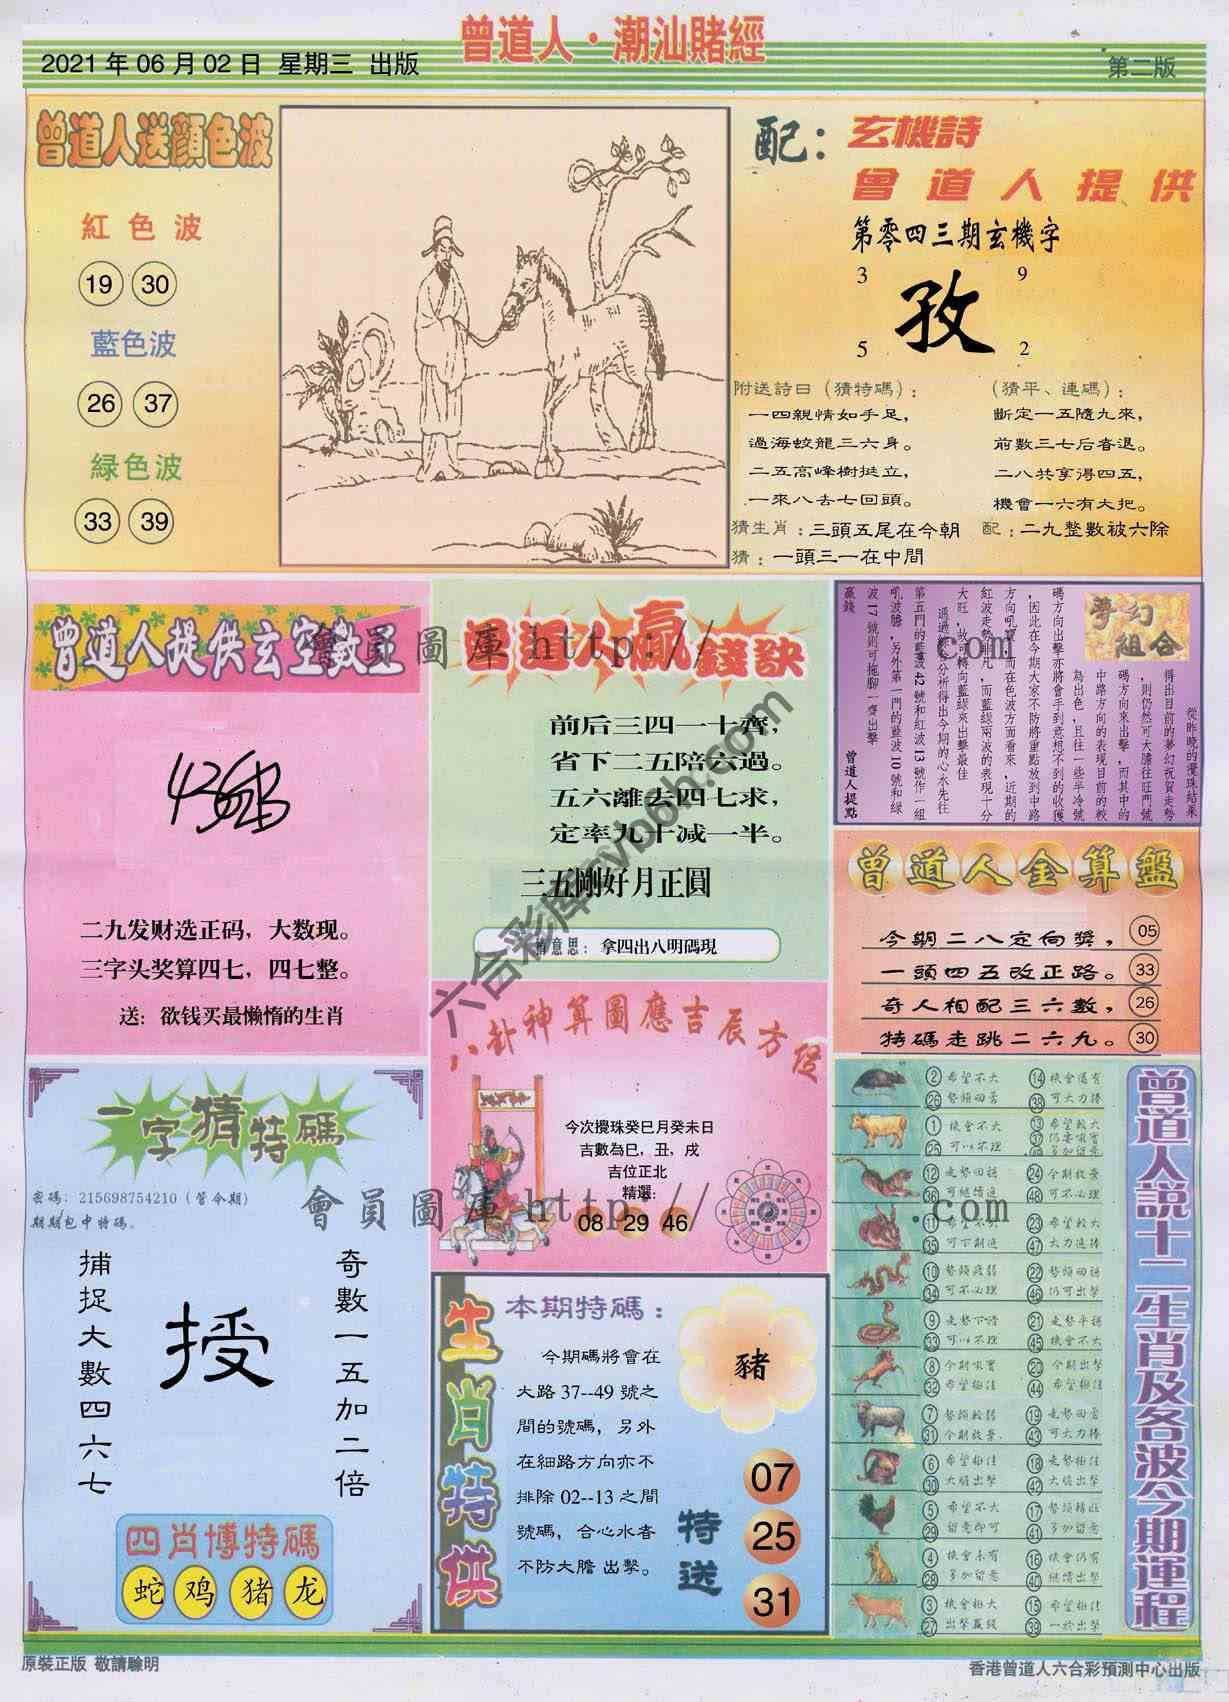 曾道人·潮汕賭經
2021 年 06 月 02 日 星期三 出版
第二版
曾道人送顏色波
紅色波
19 30
藍色波
26 37
緑色波
33 39
配：玄機詩
曾道人提供
第零四三期玄機字
3 9
孜
5 2
附送詩曰（猜特碼）：
一四親情如手足，
過海蛟龍三六身。
二五高峰樹挺立，
一來八去七回頭。
（猜平、連碼）：
斷定一五隨九來，
前數三七后春退。
二八共享得四五，
機會一六有大把。
猜生肖：三頭五尾在今朝
配：二九整數被六除
猜：一頭三一在中間
曾道人提供玄空數王
二九发财选正码，大数现。
三字头奖算四七，四七整。
送：欲钱买最懒惰的生肖
曾道人贏錢訣
前后三四一十齊，
省下二五陪六過。
五六離去四七求，
定率九十减一半。
三五剛好月正圓
曾意思：拿四出八明碼現
夢幻組合
從昨晚的攪珠結果
得出目前的夢幻祝賀走勢
，則仍然可大膽往旺門號
碼方向來出擊，而其中的
中路方向的表現目前的較
為出色，且往一些半冷號
碼方向出擊亦將會手到意想不到的收獲
，因此在今期大家不防將重點放到中路
方向吼實，而在色波方面看來，近期的
紅波走勢非凡，而藍綠兩波的表現十分
大旺，故可轉向藍綠來出擊最佳
通過綜合分析得出今期的心水先往
第五門的藍波 42 號和紅波 13 號作一組
吼波膽，另外第一門的藍波 10 號和綠
波 17 號則可拖腳一齊出擊
贏錢
曾道人提點
曾道人金算盤
今期二八定向獎， 05
一頭四五改正路。 33
奇人相配三六數， 26
特碼走跳二六九。 30
八卦神算圖應吉辰方位
今次攪珠癸巳月癸未日
吉數為巳，丑，戌
吉位正北
精選：
08 29 46
一字猜特碼
密碼：215698754210（管令期）
期期包中特碼。
捕捉大數四六七
授
奇數一五加二倍
四肖博特碼
蛇 鸡 猪 龙
生肖特供
本期特碼：
今期碼將會在
大路 37--49 號之
間的號碼，另外
在細路方向亦不
排除 02--13 之間
號碼，合心水者
不防大膽 出擊。
豬
特送
07
25
31
曾道人説十二生肖及各波今期運程
2 希望不大 14 機會還有
26 勢頭回落 38 可大力捧
1 機會不大 13 希望較大
25 可以不理 37 仍要吼實
多加留意
12 走勢回穩 24 今期放棄
36 可繼續追 48 可不心理
23 希望較大
35 可下刷追 47 大力追捧
10 勢頭疲弱 22 勢頭回穩
34 可不心理 46 仍可出擊
9 走勢下滑 21 走勢平穩
33 可以不理 45 機會不大
8 今期吼實 20 今期出擊
32 希望極佳 44 希望極佳
7 勢頭較弱 19 走勢回落
31 今期放棄 43 可大力捧
6 希望極佳 18 走勢極佳
30 大膽出擊 42 大膽出擊
5 希望不大 17 勢頭轉旺
29 留意即可 41 多加留意
4 機會未有 16 機會仍有
28 多加留意 40 繼續出擊
3 機會極大 15 希望極佳
27 出擊贏錢 39 一於出擊
會員圖庫 http:// .com
會員圖庫 http:// .com
六合彩库
原裝正版 敬請驗明
香港曾道人六合彩預測中心出版